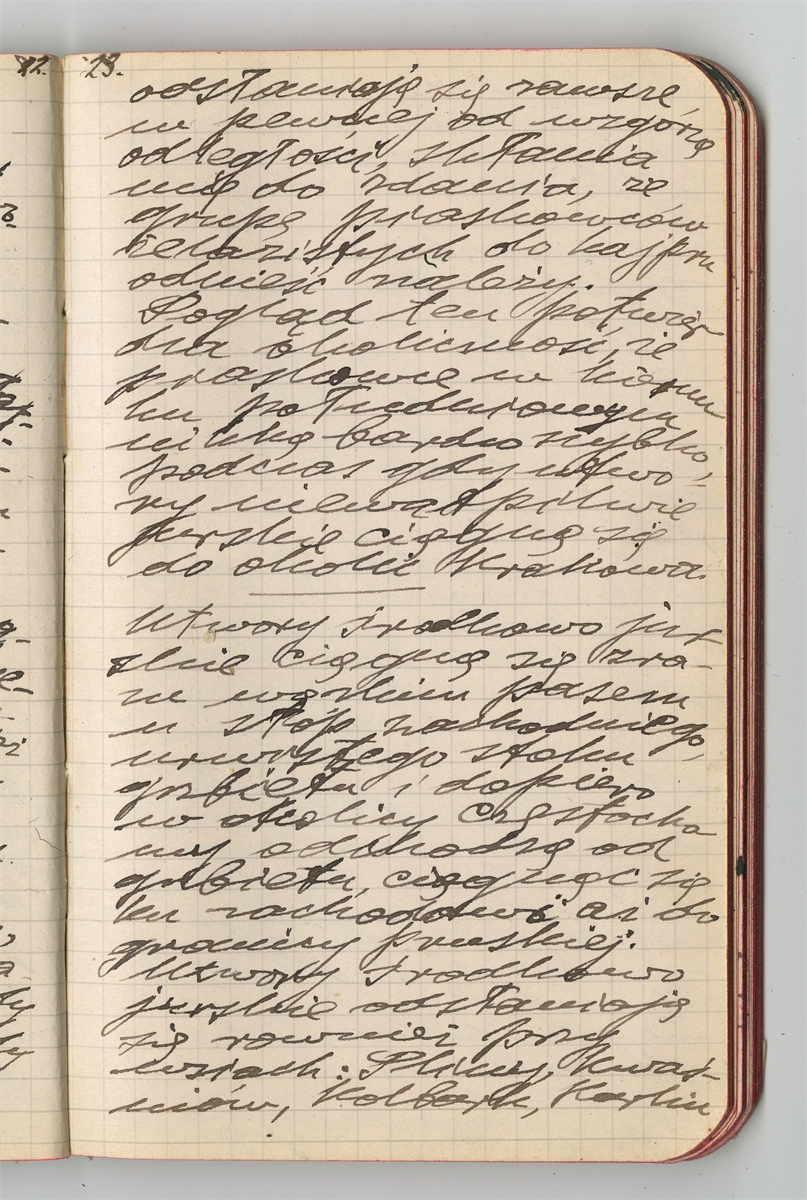 22. 23.
odsłaniają się zawsze
w pewnej od wzgórzy
odległości, skłania
mię do zdania, że
grupę piaskowców
żelazistych do kajpru
odnieść należy.
Pogląd ten potwier
dza okoliczność, że
piaskowce w kierun
ku południowym
nikną bardzo szybko,
podczas gdy utwo-
ry niewątpliwie
jurskie ciągną się
do okolic Krakowa.
Utwory środkowo jur
skie ciągną się zra-
zu wązkim pasem
u stóp zachodniego,
urwistego stoku
grzbietu i dopiero
w okolicy Częstocho
wy odchodzą od
grzbietu, ciągnąc się
ku zachodowi aż do
granicy pruskiej.
Utwory środkowo
jurskie odsłaniają
się również przy
wsiach: Pilicy, Kwaś-
niów, Kolbark, Karlin